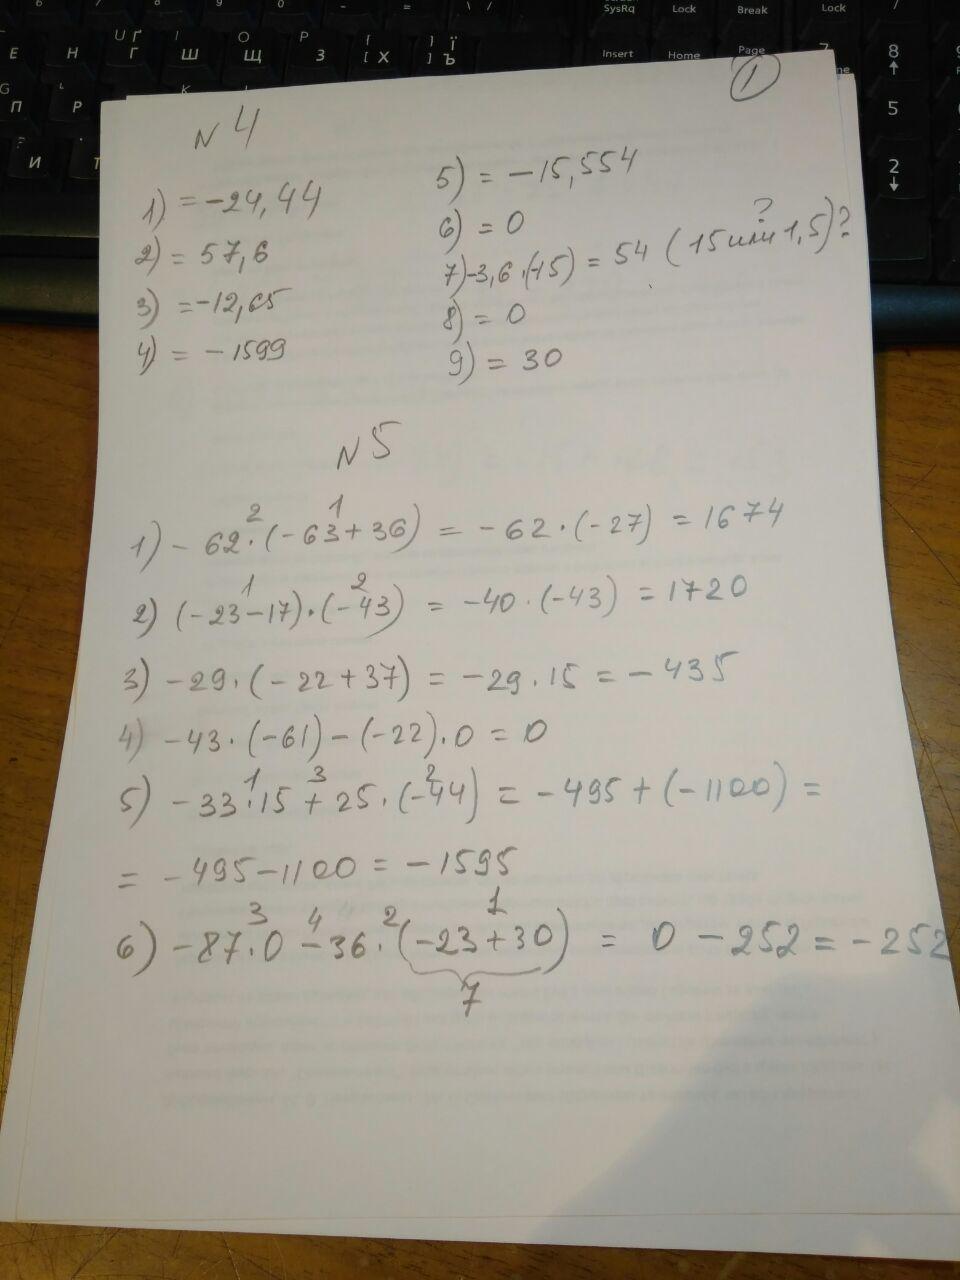 SysRq
Lock
Break
Lock
Insert
Home
Page
1
N 4
1) = -24,44
2) = 57,6
3) = -12,65
4) = -1599
5) = -15,554
6) = 0
7) -3,6·(-15) = 54 (15 или 1,5)?
?
8) = 0
9) = 30
N 5
2 1
1) -62·(-63+36) = -62·(-27) = 1674
1 2
2) (-23-17)·(-43) = -40·(-43) = 1720
3) -29·(-22+37) = -29·15 = -435
4) -43·(-61)-(-22)·0 = 0
1 3 2
5) -33·15+25·(-44) = -495+(-1100) =
= -495-1100 = -1595
3 4 2 1
6) -87·0-36·(-23+30) = 0-252 = -252
7